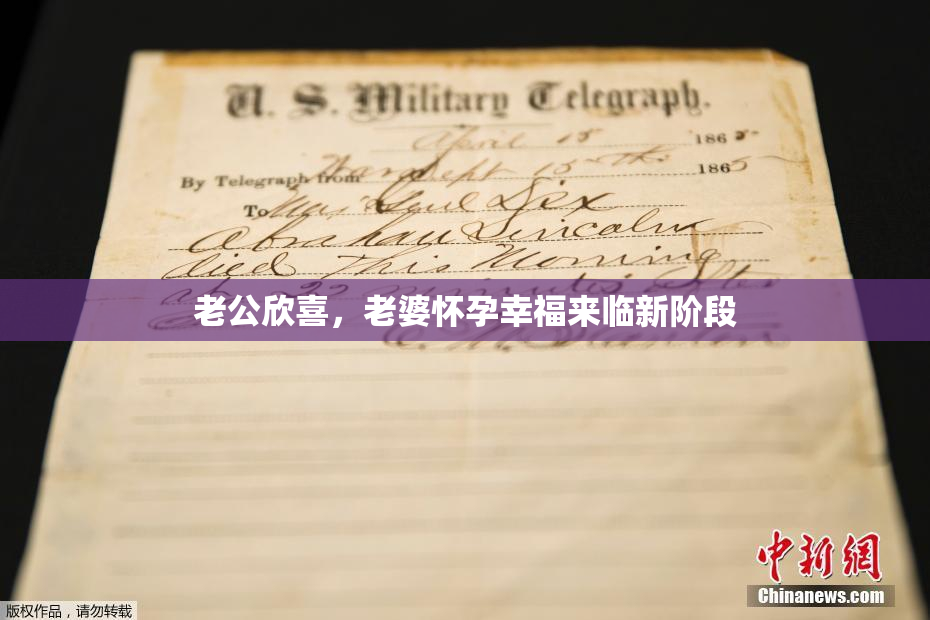 U. S. Military Telegraph.
April 15 1865
By Telegraph from War Dept 15th 1865
To Maj Genl Dix
Abraham Lincoln
died This Morning
at 22 minutes after
老公欣喜，老婆怀孕幸福来临新阶段
中新网
Chinanews.com
版权作品，请勿转载